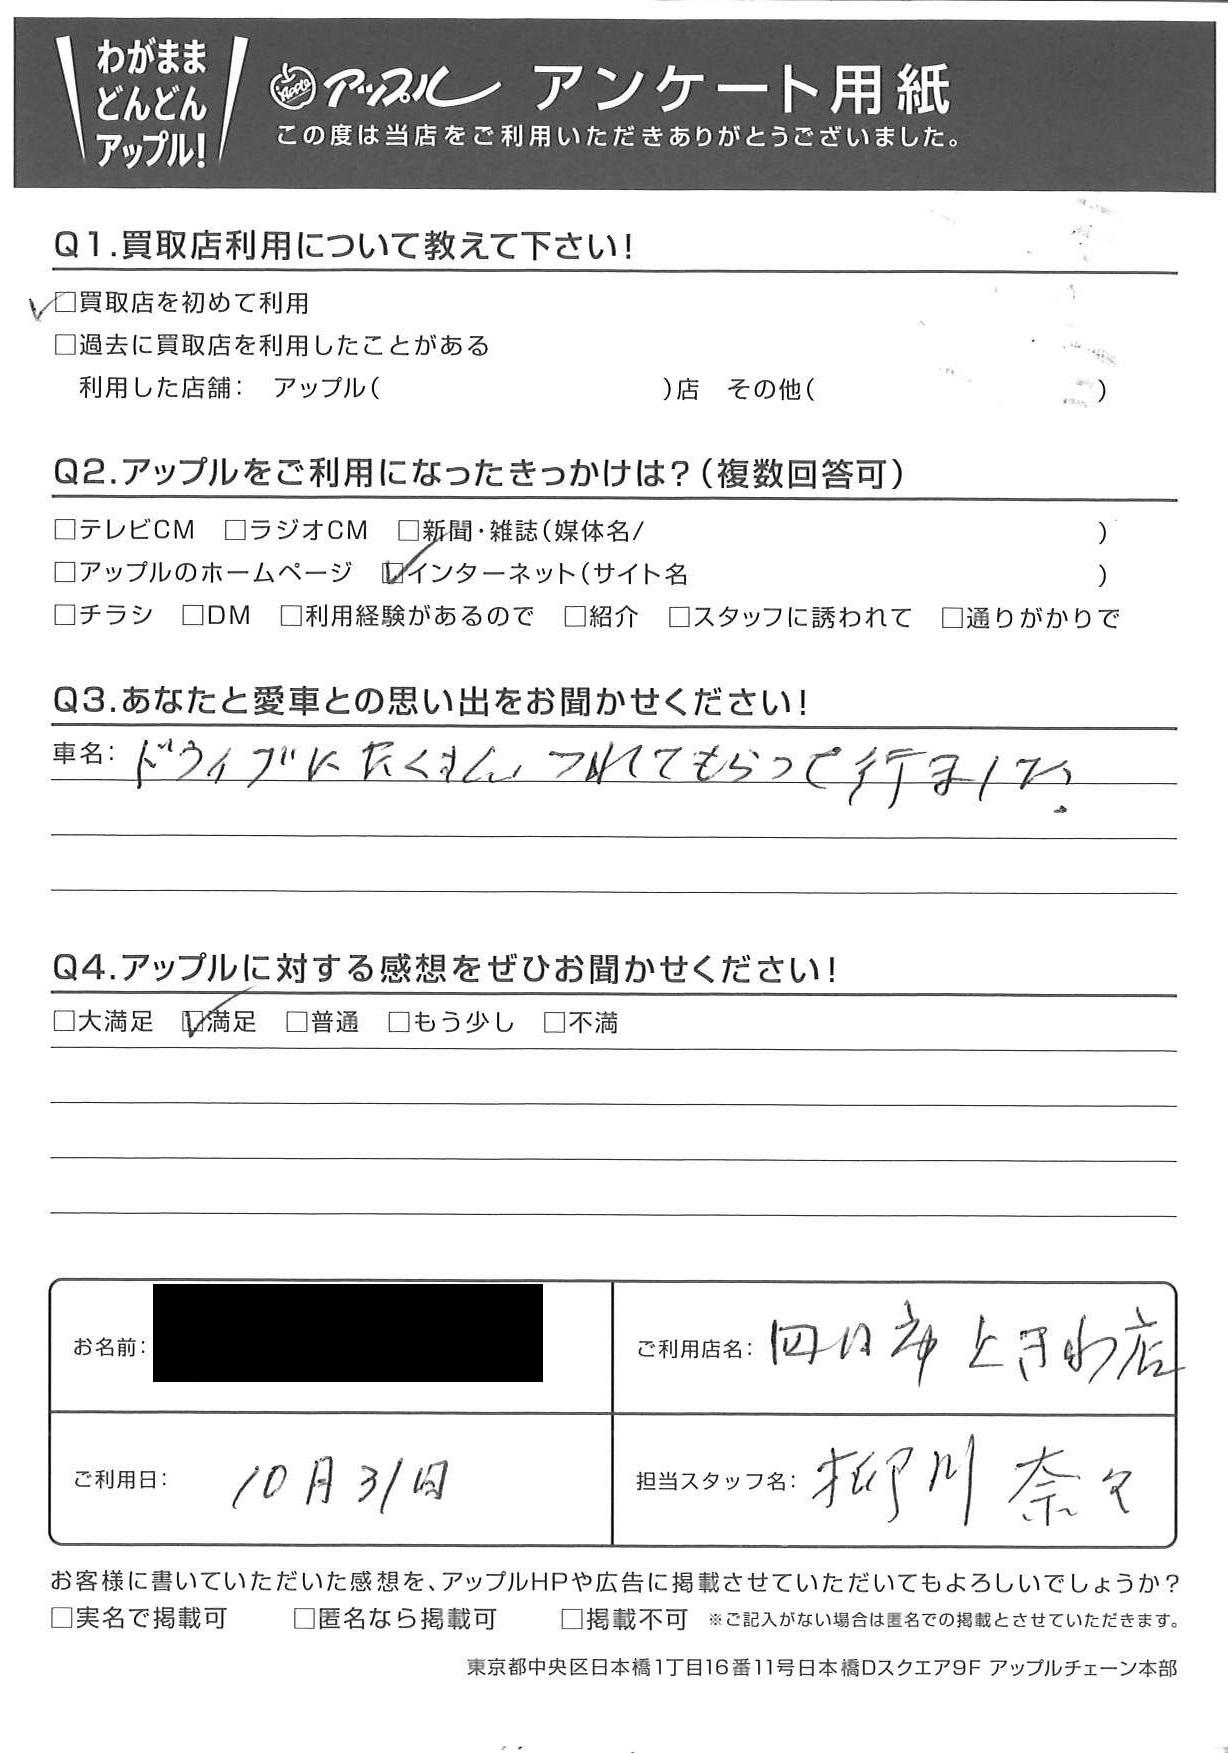 わがまま
どんどん
アップル!
Apple アップル アンケート用紙
この度は当店をご利用いただきありがとうございました。
Q1.買取店利用について教えて下さい!
□買取店を初めて利用
□過去に買取店を利用したことがある
利用した店舗: アップル( )店 その他( )
Q2.アップルをご利用になったきっかけは?(複数回答可)
□テレビCM □ラジオCM □新聞・雑誌(媒体名/ )
□アップルのホームページ □インターネット(サイト名 )
□チラシ □DM □利用経験があるので □紹介 □スタッフに誘われて □通りがかりで
Q3.あなたと愛車との思い出をお聞かせください!
車名: ドライブにたくさんつれてもらって行ました。
Q4.アップルに対する感想をぜひお聞かせください!
□大満足 □満足 □普通 □もう少し □不満
お名前:
ご利用店名: 四日市ときわ店
ご利用日: 10月31日
担当スタッフ名: 柳川 奈々
お客様に書いていただいた感想を、アップルHPや広告に掲載させていただいてもよろしいでしょうか?
□実名で掲載可 □匿名なら掲載可 □掲載不可 ※ご記入がない場合は匿名での掲載とさせていただきます。
東京都中央区日本橋1丁目16番11号日本橋Dスクエア9F アップルチェーン本部